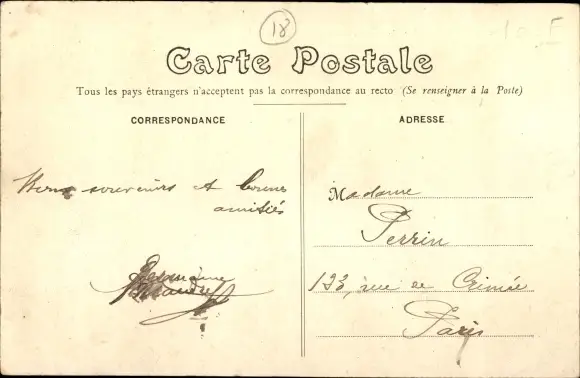 18
Carte Postale
Tous les pays étrangers n'acceptent pas la correspondance au recto (Se renseigner à la Poste)
CORRESPONDANCE
souvenirs et bonnes
amitiés
ADRESSE
Madame
Perrin
133, rue de Crimée
Paris